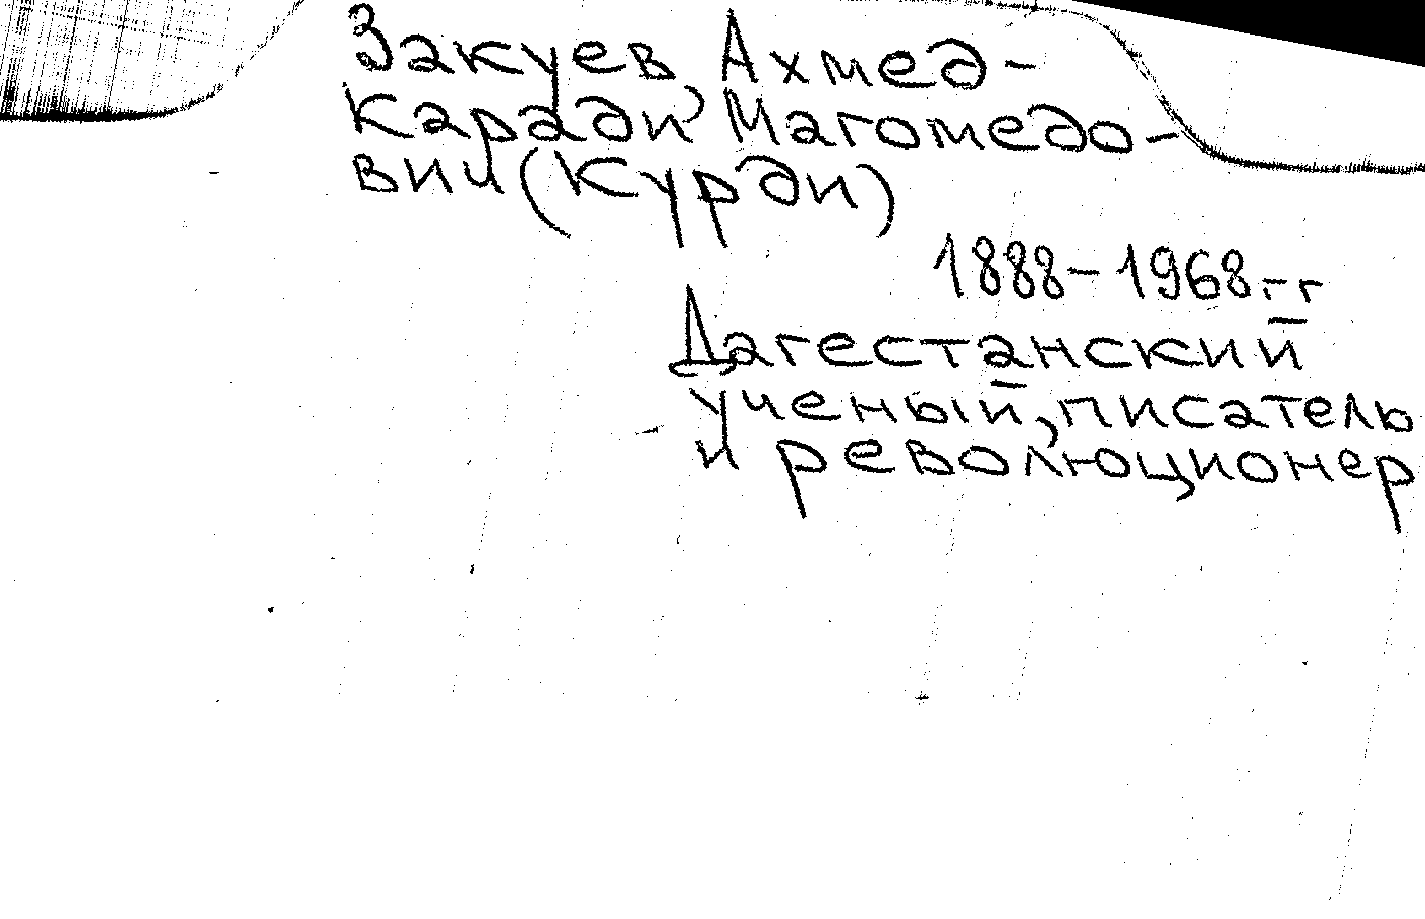 Закуев, Ахмед-
Каради Магомедо-
вич (Курди)
1888-1968гг
Дагестанский
ученый, писатель
и революционер